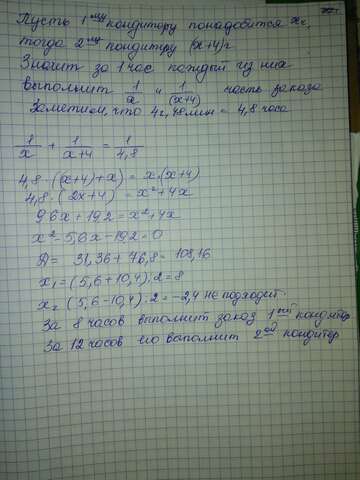 Пусть 1му кондитору понадобится x ч,
тогда 2му кондитору (x+4)ч
Значит за 1 час каждый из них
выполнит 1/x и 1/(x+4) часть заказа
Заметим, что 4ч,48мин = 4,8 часа
1/x + 1/(x+4) = 1/4,8
4,8·(x+4)+x) = x·(x+4)
4,8·(2x+4) = x²+4x
9,6x+19,2=x²+4x
x²-5,6x-19,2=0
D= 31,36+76,8=108,16
x₁=(5,6+10,4):2=8
x₂(5,6-10,4):2=-2,4 не подходит.
За 8 часов выполнит заказ 1ый кондитор
За 12 часов его выполнит 2ой кондитор